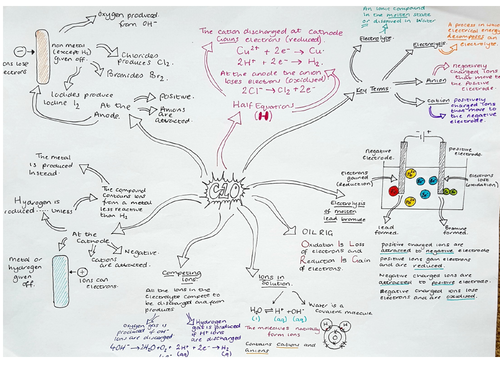 Oxygen produced
from OH-
ions lose
electrons
non metal
(except H2)
given off.
Chlorides
produces Cl2.
Bromides Br2.
Iodides produce
Iodine I2
At the
Anode.
Positive.
Anions
are attracted.
The cation discharged at cathode
Gains electrons (reduced)
Cu2+ + 2e- → Cu.
2H+ + 2e- → H2.
At the anode the anion
loses electron (oxidised)
2Cl- → Cl2 + 2e-
Half Equation
(H)
An ionic compound
in the molten state
or dissolved in Water
Electrolyte
A process in which
electrical energy
decomposes an
electrolyte.
Electrolysis
Negatively
charged ions
that move to
the Positive
electrode.
Anion
Key Terms
Cation
Positively
charged ions
that move to
the negative
electrode.
The metal
is produced
instead.
Hydrogen is
produced
unless
The compound
contains ions
from a metal
less reactive
than H2
At the
Cathode
Negative.
Cations
are attracted.
Metal or
hydrogen
given
off.
ions gain
electrons.
C10
Competing
Ions
All the ions in the
Electrolyte compete to
be discharged and form
products
Oxygen gas is
produced if OH-
ions are discharged
4OH- → 2H2O + O2
Hydrogen
gas is produced
if H+ ions
are discharged
2H+ + 2e- → H2
(aq) (g)
Ions in
Solution
Water is a
Covalent molecule
H2O ⇌ H+ + OH-
(l) (aq) (aq)
The molecules naturally
form ions.
Contains Cation and
Anions
OILRIG
Oxidation Is Loss
of electrons and
Reduction Is Gain
of electrons.
Electrolysis
of molten
lead bromide
negative
electrode.
Positive
electrode.
Electrons
gained
(Reduction)
Electrons
lost
(oxidation)
Lead
formed.
Bromine
formed.
positive charged ions are
attracted to negative electrode
positive ions gain electrons
and are reduced.
Negative charged ions are
attracted to positive electrode.
Negative charged ions lose
electrons and are oxidised